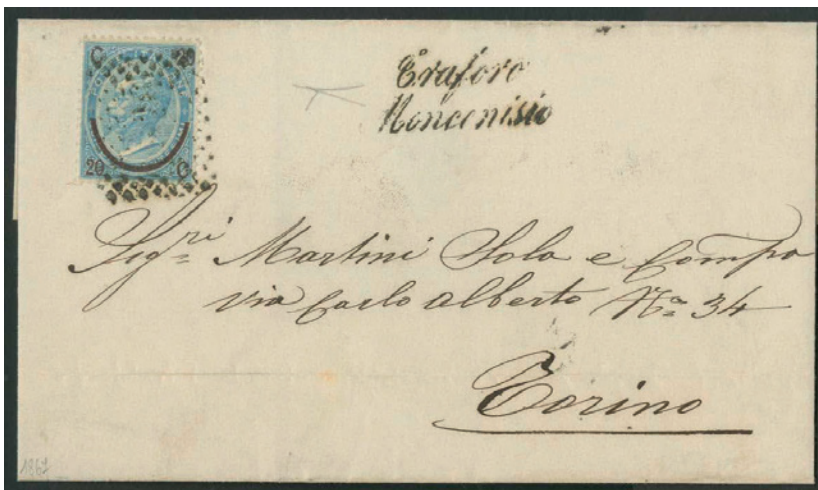 C 20
20 C
Traforo
Moncenisio
Sig.ri Martini Sola e Compa
via Carlo Alberto No 34
Torino
1867